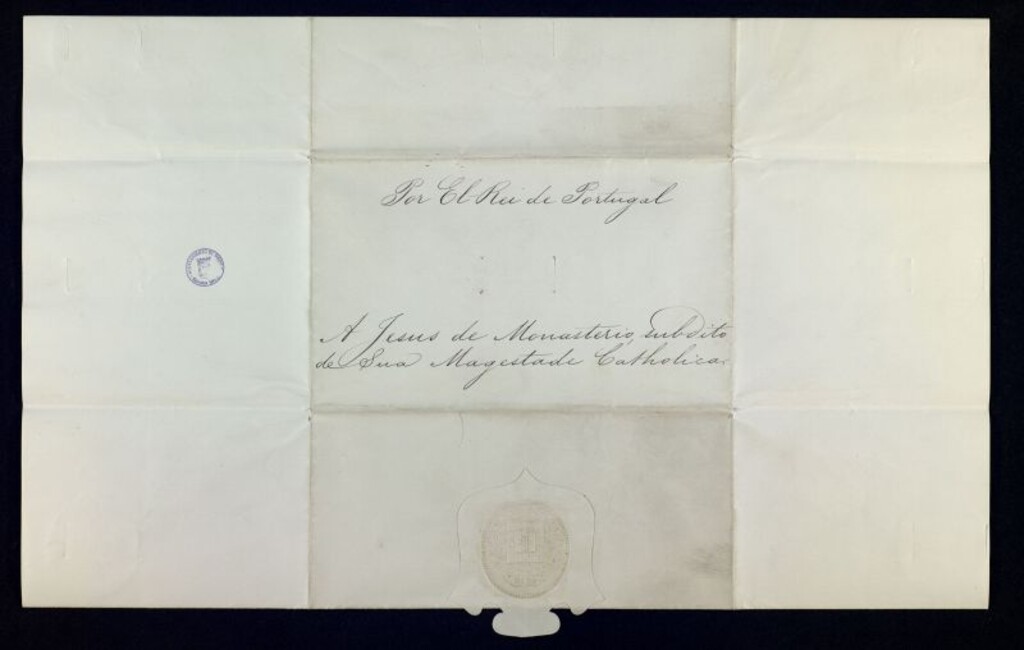 Por El-Rei de Portugal
A Jesus de Monasterio, subdito
de Sua Magestade Catholica.